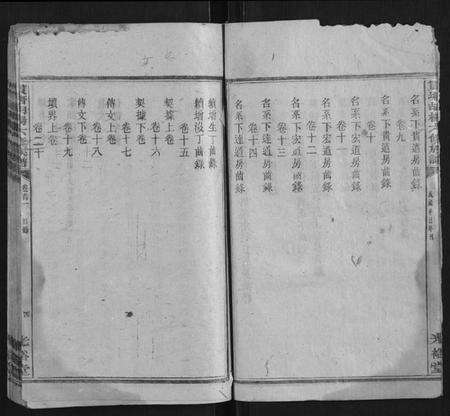 卷九
名系下貫道房齒錄
卷十
名系下宏道房齒錄
卷十一
名系下宏道房齒錄
卷十二
名系下宏道房齒錄
卷十三
名系下達道房齒錄
卷十四
名系下達道房齒錄
續增生丁齒錄
續增沒丁齒錄
卷十五
契據上卷
卷十六
契據下卷
卷十七
傳文上卷
卷十八
傳文下卷
卷十九
墳界上卷
卷二十
卷首一
四